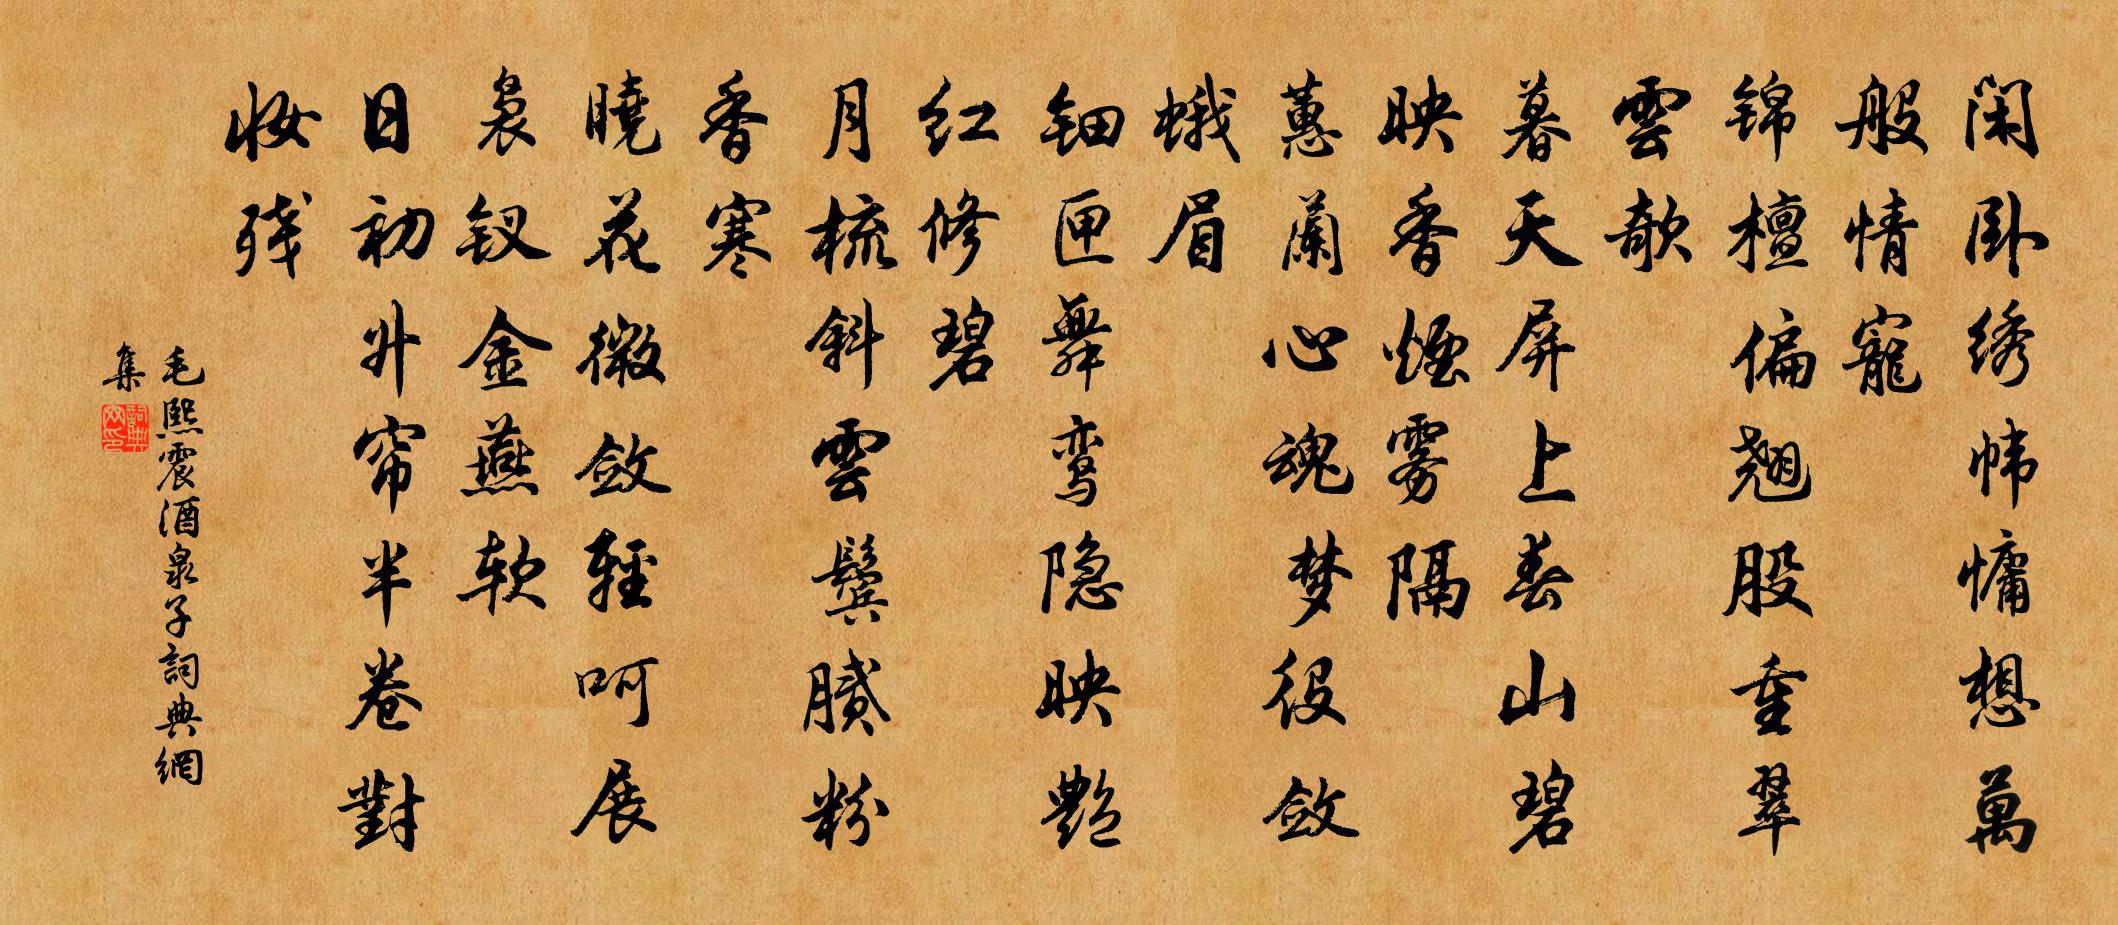 闲卧绣帏慵想萬
般情寵
锦檀偏翘股重翠
雲欹
暮天屏上春山碧
映香煙雾隔
蕙蘭心魂梦役敛
蛾眉
钿匣舞鸾隐映艶
红修碧
月梳斜雲鬓腻粉
香寒
曉花微敛輕呵展
袅钗金燕软
日初升帘半卷對
妆残
毛熙震酒泉子詞典網
集
詞典
网印